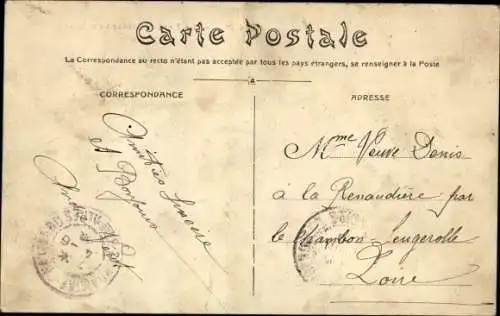 Carte Postale
La Correspondance au recto n'étant pas acceptée par tous les pays étrangers, se renseigner à la Poste
CORRESPONDANCE
ADRESSE
Amitiés Simone
et Bonjours
Mme Veuve Denis
à la Renaudière par
le Chambon Feugerolle
Loire